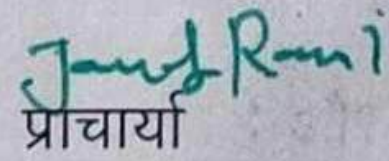 Rani
प्राचार्या